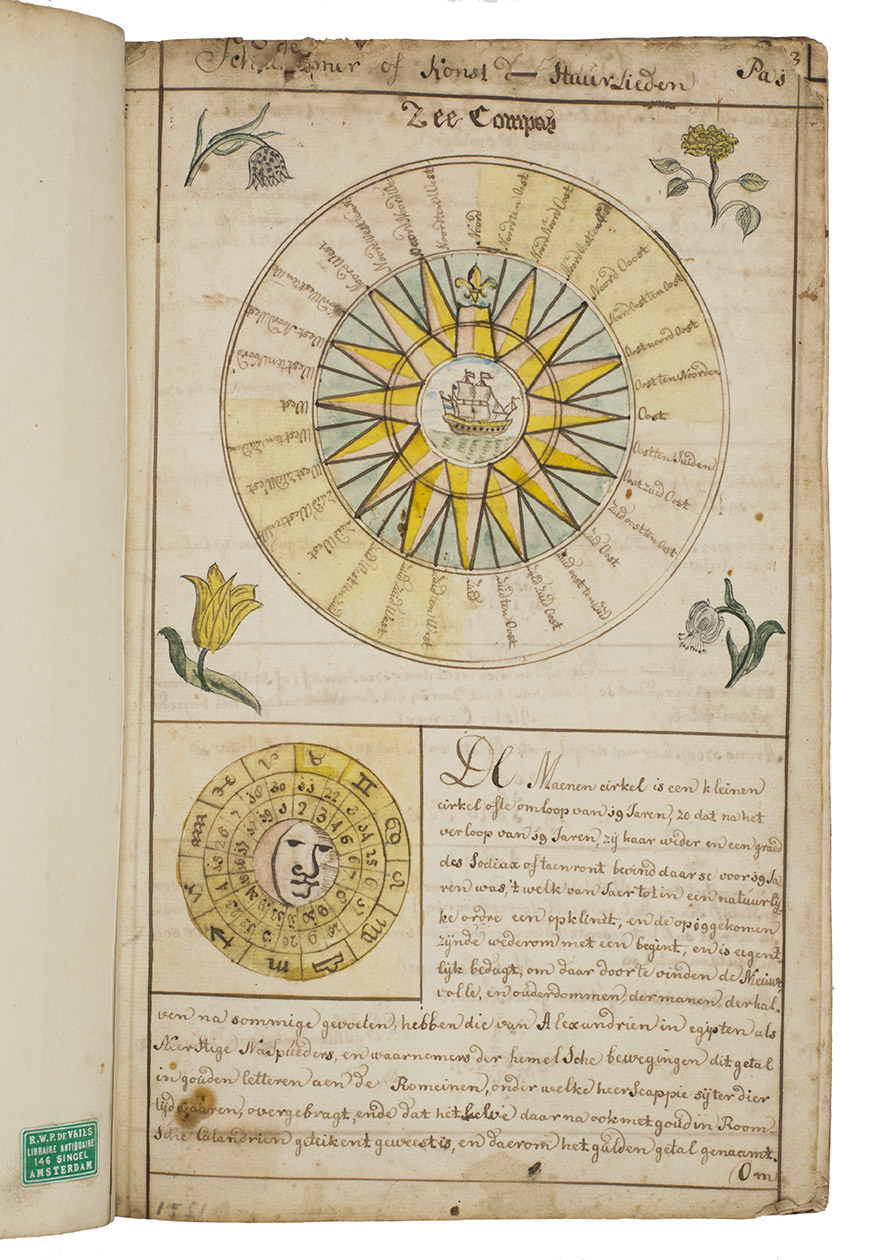 Schat Camer of Konst der Stuurlieden Pas 3
Zee Compas
Noord
Noord ten Oost
Noord Noord Oost
Noord Oost ten Noord
Noord Oost
Noord Oost ten Oost
Oost noord Oost
Oost ten Noorden
Oost
Oost ten Suiden
Oost zuid Oost
Zuid oost ten Oost
Zuid Oost
Zuid oost ten Zuid
Zuid Zuid Oost
Zuid ten Oost
Zuid
Zuid ten West
Zuid Zuid West
Zuid West ten Zuid
Zuid West
Zuid West ten West
West Zuid West
West ten Zuiden
West
West ten Noord
West Noord West
Noord West ten West
Noord West
Noord West ten Noord
Noord Noord West
Noord ten West
De Maenen cirkel is een kleinen
cirkel ofte omloop van 19 Jaren, zo dat na het
verloop van 19 Jaren, zij haar weder en een graed
des Sodiax of taenront bevind daar se voor 19 Ja
ren was, 't welk van Jaer tot in een natuurly
ke ordre een opklindt, en de op 19 gekomen
zijnde wederom met een begint, en is eigent
lijk bedagt, om daar door te vinden de Nieuwe
volle, en ouderdommen der manen, derhal
ven na sommige gevoelen, hebben die van Alexandrien in egypten als
Neerstige Naspueders, en waarnemers der hemelsche bewegingen dit getal
in gouden letteren aen de Romeinen, onder welke heerscappie sij ter dier
tijd waaren, overgebragt, ende dat het selve daar na ook met goud in Room
sche Calandrien geteikent geweest is, en daerom het gulden getal genaamt.
(Om
R.W.P. DE VRIES
LIBRAIRE ANTIQUAIRE
146 SINGEL
AMSTERDAM